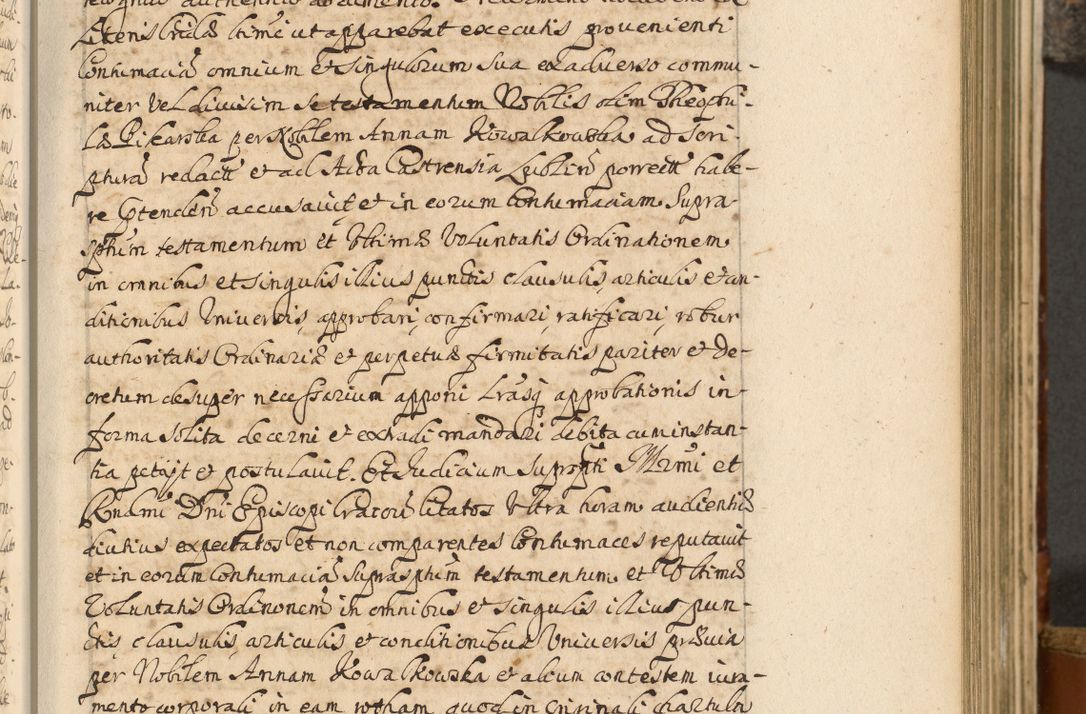 Litteris Cridae ltime ut apparebat executis provenienti
Contumaciā omnium et singulorum sua ex adverso commu-
niter vel divisim se testamentum Nobilis olim Theophi-
lae Pikarska per Nobilem Annam Kowalkowska ad Scri-
pturā redactt et ad Acta Castrensia Lublin porrectt habe-
re Ptenden accusavit et in eorum Contumaciam Supra-
sptum testamentum et Ultimae Voluntatis Ordinationem
in omnibus et singulis illius punctis clausulis, articulis et con-
ditionibus Universis, approbari, confirmari, ratificari, robur
authoritatis Ordinariae et perpetuae firmitatis pariter et de-
cretum desuper necessarium apponi Lrasq approbationis in
forma solita decerni et extradi mandari debita cum instan-
tia petyt et postulavit. Et Judicium Suprapti Illmi et
Rndmi Dni Episcopi Cracovi Citatos Ultra horam audientiae
diutius expectatos et non comparentes Contumaces reputavit
et in eorum Contumaciā Suprasptum testamentum et Ultimae
Voluntatis Ordinonem in omnibus et singulis illius pun-
ctis clausulis, articulis et conditionibus Universis praevia
per Nobilem Annam Kowalkowska et alium contestem iura-
mento corporali in eam rotham quod in originali chartula